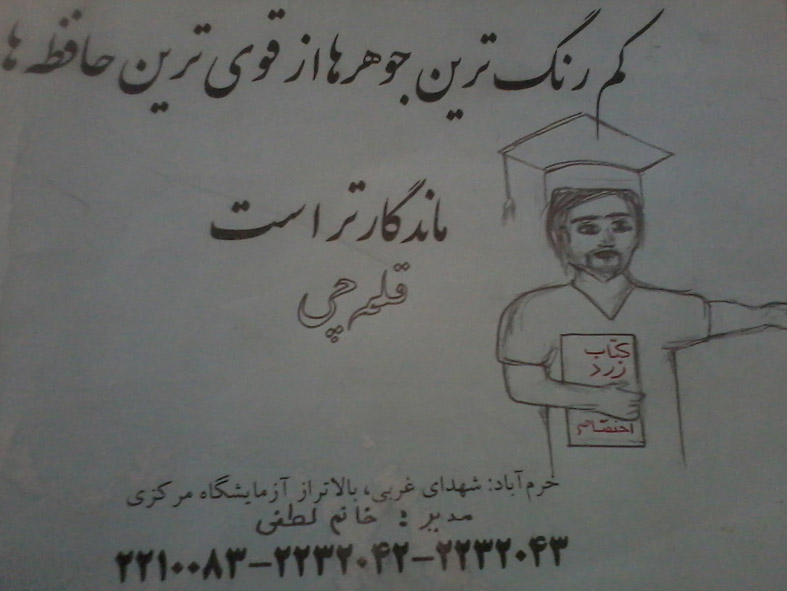 کم رنگ ترین جوهرها از قوی ترین حافظه ها
ماندگارتر است
قلم چی
کتاب
زرد
اختصاصی
خرم‌آباد: شهدای غربی، بالاتر از آزمایشگاه مرکزی
مدیر: خانم لطفی
۲۲۱۰۰۸۳-۲۲۳۲۰۴۲-۲۲۳۲۰۴۳